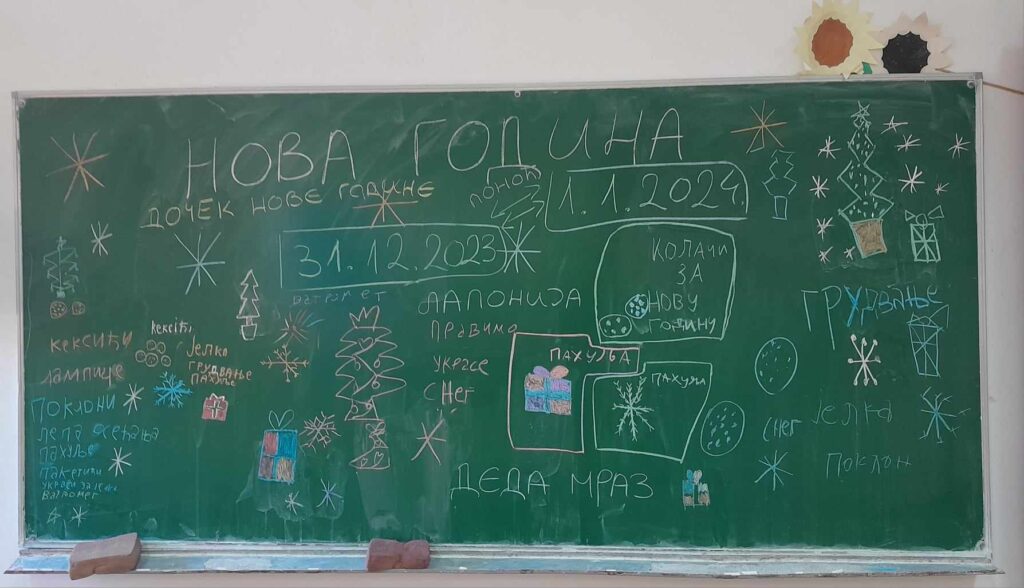 НОВА ГОДИНА
ДОЧЕК НОВЕ ГОДИНЕ
ПОНОЋ
1.1.2024.
31.12.2023.
ВАТРОМЕТ
КЕКСИЋИ
ЛАМПИЦЕ
ПОКЛОНИ
ЛЕПА ОСЕЋАЊА
ПАХУЉЕ
ПАКЕТИЋИ
УКРАСИ ЗА ЈЕЛКУ
ВАТРОМЕТ
КЕКСИЋИ
ЈЕЛКА
ГРУДВАЊЕ
ПАХУЉЕ
ЛАПОНИЈА
Правимо
УКРАСЕ
СНЕГ
КОЛАЧИ
ЗА
НОВУ
ГОДИНУ
ПАХУЉА
ПАХУЉА
ДЕДА МРАЗ
ГРУДВАЊЕ
СНЕГ
ЈЕЛКА
ПОКЛОН